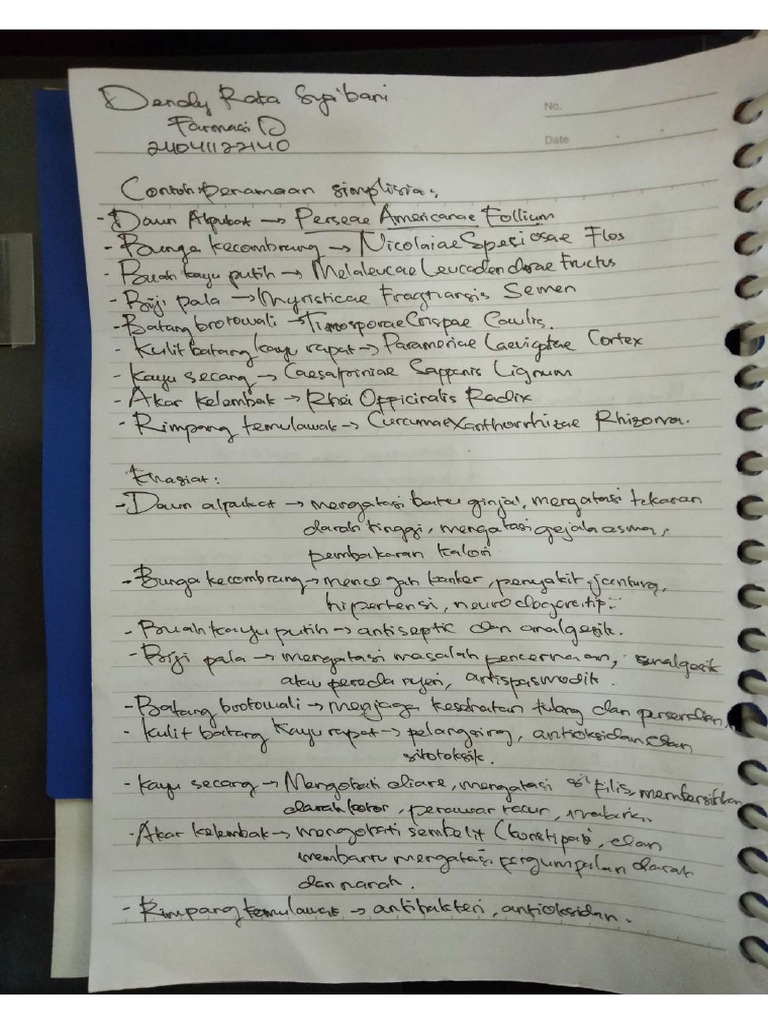 Dendy Rata Syaibani
No.
Farmasi D
Date
24041122140
Contoh penamaan simplisia :
- Daun Alpukat → Perseae Americanae Follium
- Bunga kecombrang → Nicolaiae Speciosae Flos
- Buah kayu putih → Melaleucae Leucadendorae Fructus
- Biji pala → Myristicae Fragransis Semen
- Batang brotowali → Tinosporae Crispae Caulis.
- Kulit batang kayu rapat → Parameriae Laevigatae Cortex
- Kayu secang → Caesalpiniae Sappanis Lignum
- Akar kelembak → Rhei Officinalis Radix
- Rimpang temulawak → Curcumae Xanthorrhizae Rhizoma.
Khasiat :
- Daun alpukat → mengatasi batu ginjal, mengatasi tekanan
darah tinggi, mengatasi gejala asma,
pembakaran kalori
- Bunga kecombrang → mencegah kanker, penyakit jantung,
hipertensi,
- Buah kayu putih → antiseptic dan analgesik.
- Biji pala → mengatasi masalah pencernaan, analgesik
atau pereda nyeri, antispasmodik.
- Batang brotowali → menjaga kesehatan tulang dan persendian,
- kulit batang kayu rapat → pelangsing, antioksidan dan
sitotoksik.
- kayu secang → Mengobati diare, mengatasi sifilis, membersihkan
darah kotor, penawar racun,
- Akar kelembak → mengobati sembelit (konstipasi), dan
membantu mengatasi penggumpalan darah
dan nanah.
- Rimpang temulawak → antibakteri, antioksidan.